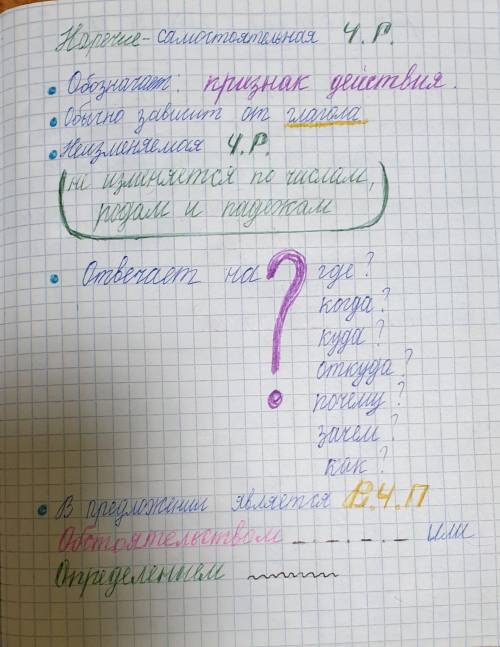 Наречие - самостоятельная Ч.Р.
• Обозначает: признак действия.
• Обычно зависит от глагола
• Неизменяемая Ч.Р.
(не изменяется по числам,
родам и падежам)
• Отвечает на ? где?
когда?
куда?
откуда?
почему?
зачем?
как?
• В предложении является В.Ч.П
Обстоятельством _._._._ или
Определением